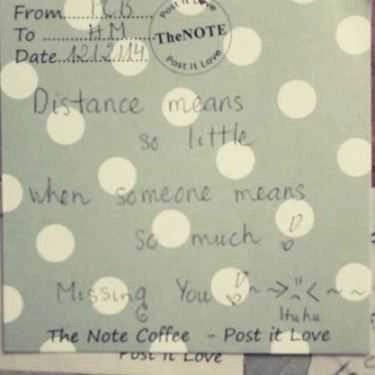 From PCB
Post it Love
To HM
TheNOTE
Date 12/2/14
Post it Love
Distance means
so little
when someone means
so much
Missing You ~~>"<~~
Huhu
The Note Coffee - Post it Love
Post it Love